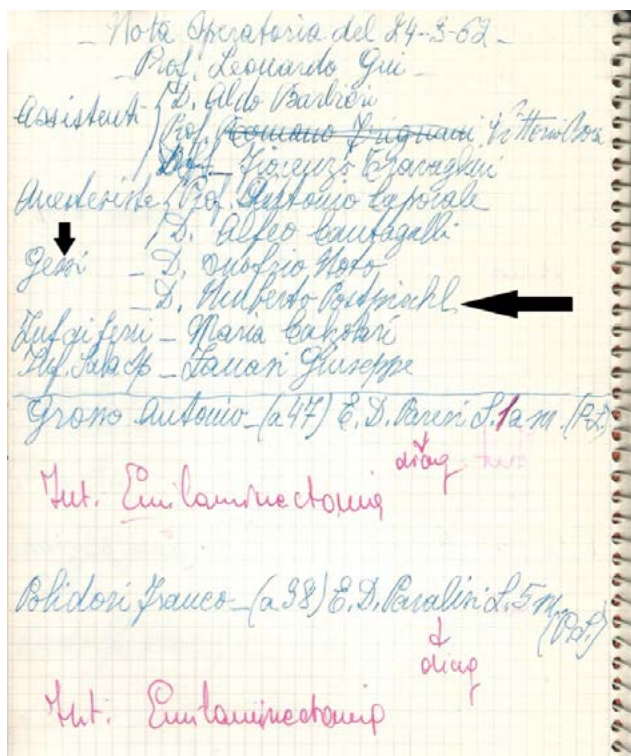 Nota Operatoria del 24-3-62
Prof. Leonardo Gui
Assistenti D. Aldo Barbieri
Prof. Romano Frignani Vittorio
Fiorenzo Travaglini
Anesteriste Prof. Antonio Caporale
D. Alfeo Cantagalli
Gessi - D. Onofrio Noto
- D. Umberto Postpischl
Inf. ai ferri - Maria Canolari
Inf. Sala op - Giuseppe
Grosso Antonio - (a 47) E.D. Paresi S. 1a m. (P.L.)
diag
Int. Emilaminectomia
Polidori Franco - (a 38) E.D. Paralisi L. 5 m.
(P.L.)
diag
Int. Emilaminectomia